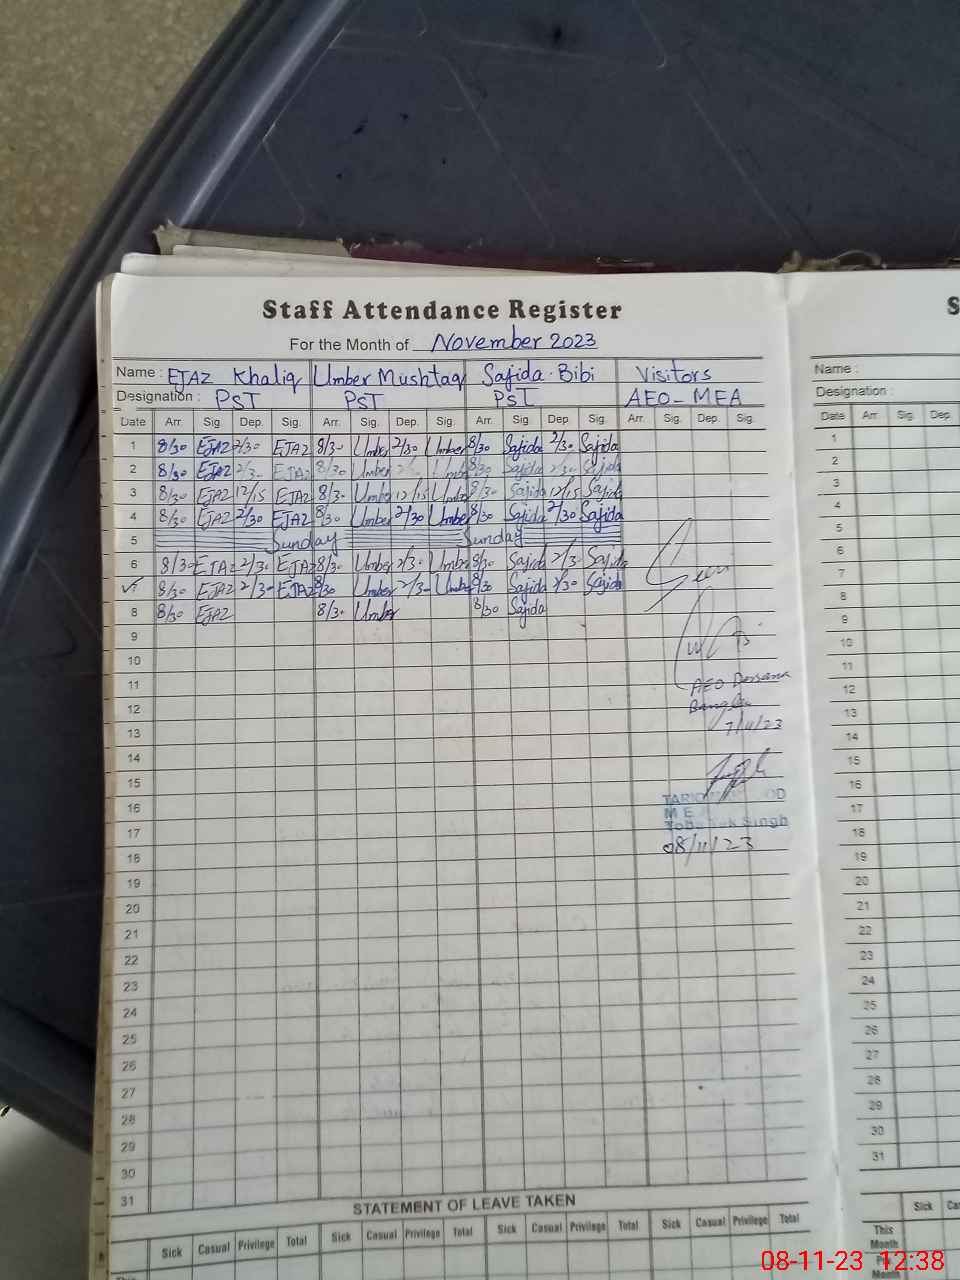 Staff Attendance Register
For the Month of November 2023
Name : EJAZ Khaliq Umber Mushtaq Sajida Bibi Visitors
Designation : PST PST PST AEO - MEA
Date Arr. Sig. Dep. Sig. Arr. Sig. Dep. Sig. Arr. Sig. Dep. Sig. Arr. Sig. Dep. Sig.
1 8/30 EJAZ 2/30 EJAZ 8/30 Umber 2/30 Umber 8/30 Sajida 2/30 Sajida
2 8/30 EJAZ 2/30 EJAZ 8/30 Umber 2/30 Umber 8/30 Sajida 2/30 Sajida
3 8/30 EJAZ 12/15 EJAZ 8/30 Umber 12/15 Umber 8/30 Sajida 12/15 Sajida
4 8/30 EJAZ 2/30 EJAZ 8/30 Umber 2/30 Umber 8/30 Sajida 2/30 Sajida
5 Sunday Sunday
6 8/30 EJAZ 2/30 EJAZ 8/30 Umber 2/30 Umber 8/30 Sajida 2/30 Sajida
7 8/30 EJAZ 2/30 EJAZ 8/30 Umber 2/30 Umber 8/30 Sajida 2/30 Sajida
8 8/30 EJAZ 8/30 Umber 8/30 Sajida
9
10
11
AEO
12
13
7/11/23
14
15
16
TARIQ
17
M E
Singh
18
08/11/23
19
20
21
22
23
24
25
26
27
28
29
30
31
STATEMENT OF LEAVE TAKEN
Sick Casual Privilege Total Sick Casual Privilege Total Sick Casual Privilege Total Sick Casual Privilege Total
S
Name :
Designation :
Date Arr. Sig. Dep.
1
2
3
4
5
6
7
8
9
10
11
12
13
14
15
16
17
18
19
20
21
22
23
24
25
26
27
28
29
30
31
Sick
This
Month
Month
08-11-23 12:38